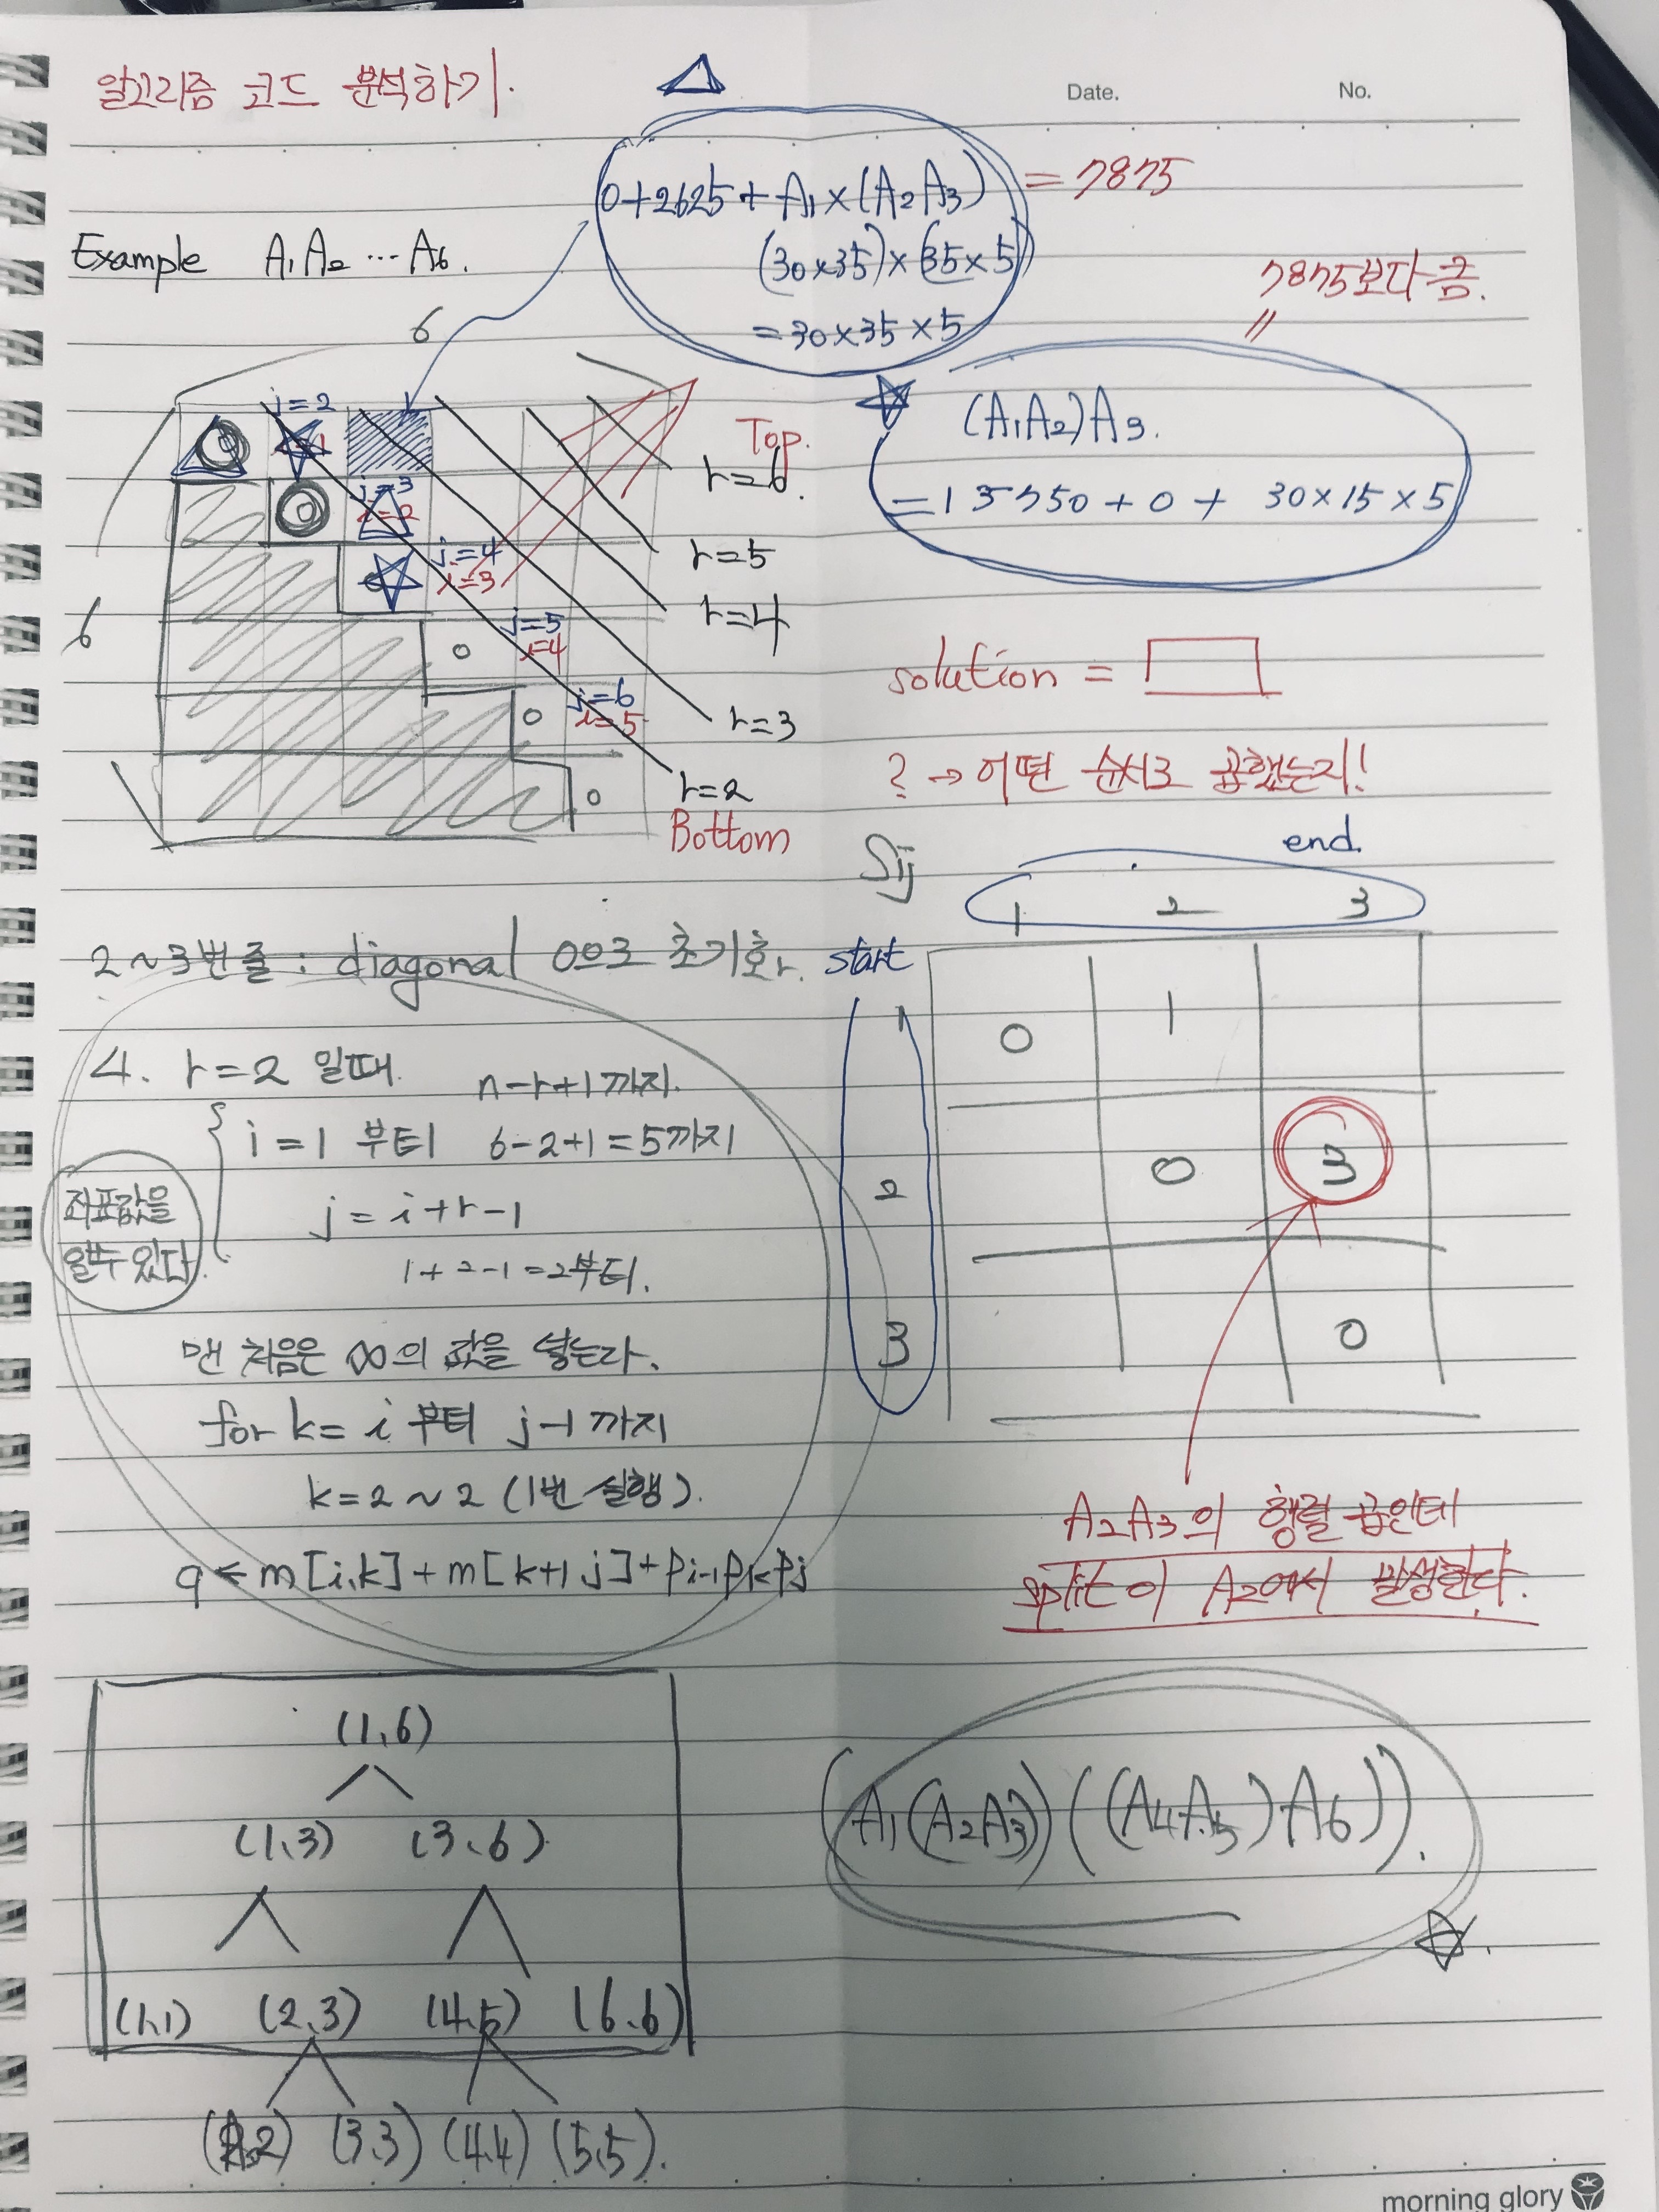 알고리즘 코드 분석하기.
Date.
No.
0+2625+A₁×(A₂A₃) = 7875
(30×35)×(35×5)
=30×35×5
Example A₁A₂ ⋯ A₆.
7875보다 큼.
〃
6
6
j=2
j=3
i=2
j=4
i=3
0
j=5
i=4
0
j=6
i=5
0
Top.
r=6.
r=5
r=4
r=3
r=2
Bottom
(A₁A₂)A₃.
=15750+0+ 30×15×5
solution =
? → 어떤 순서로 곱했는지!
Sij
end.
1 2 3
start
1 0 1
2 0 3
3 0
A₂A₃의 행렬 곱인데
split이 A₂에서 발생한다.
2~3번 줄 : diagonal 0으로 초기화.
4. r=2 일때.
n-r+1 까지.
i=1 부터 6-2+1=5까지
좌표값을
알수 있다.
j = i+r-1
1+2-1=2부터.
맨 처음은 ∞의 값을 넣는다.
for k= i 부터 j-1 까지
k=2~2 (1번 실행).
q ← m[i,k]+m[k+1,j]+Pi-1PkPj
(1,6)
(1,3) (3,6)
(1,1) (2,3) (4,5) (6,6)
(3,3) (4,4) (5,5).
(A₁(A₂A₃)((A₄A₅)A₆)).
morning glory